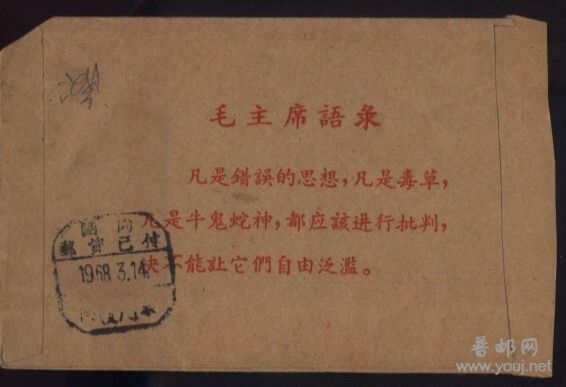 毛主席語彔
凡是錯誤的思想，凡是毒草，
凡是牛鬼蛇神，都应該进行批判，
决不能让它們自由泛濫。
国内
郵資已付
1968.3.14
普邮网
www.youj.net